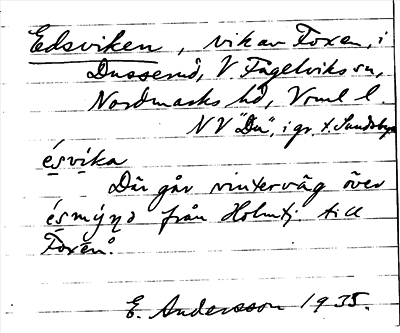 Edsviken, vik av Foxen, i
Dusserud, V. Fågelviks sn,
Nordmarks hd, Vrml l.
NV "Du", i gr. t. Sundsbyn
ésvika
Där går vinterväg över
från Holmtj. till
Foxen.
E. Andersson 1935.